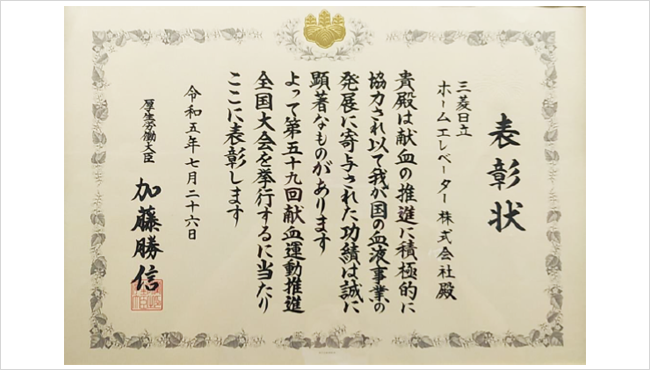 表彰状
三菱日立
ホームエレベーター株式会社殿
貴殿は献血の推進に積極的に
協力され以て我が国の血液事業の
発展に寄与された功績は誠に
顕著なものがあります
よって第五十九回献血運動推進
全国大会を挙行するに当たり
ここに表彰します
令和五年七月二十六日
厚生労働大臣
加藤勝信